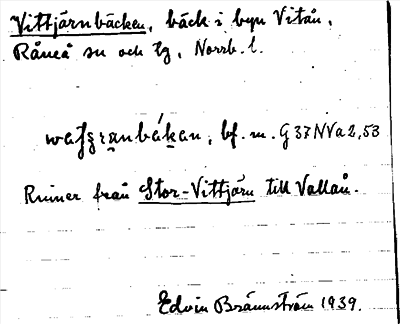 Vittjärnbäcken, bäck i byn Vitån,
Råneå sn och tg, Norrb. l.
bf. m. G 37 NVa 2,53
Rinner från Stor-Vittjärn till Vallån.
Edvin Brännström 1939.